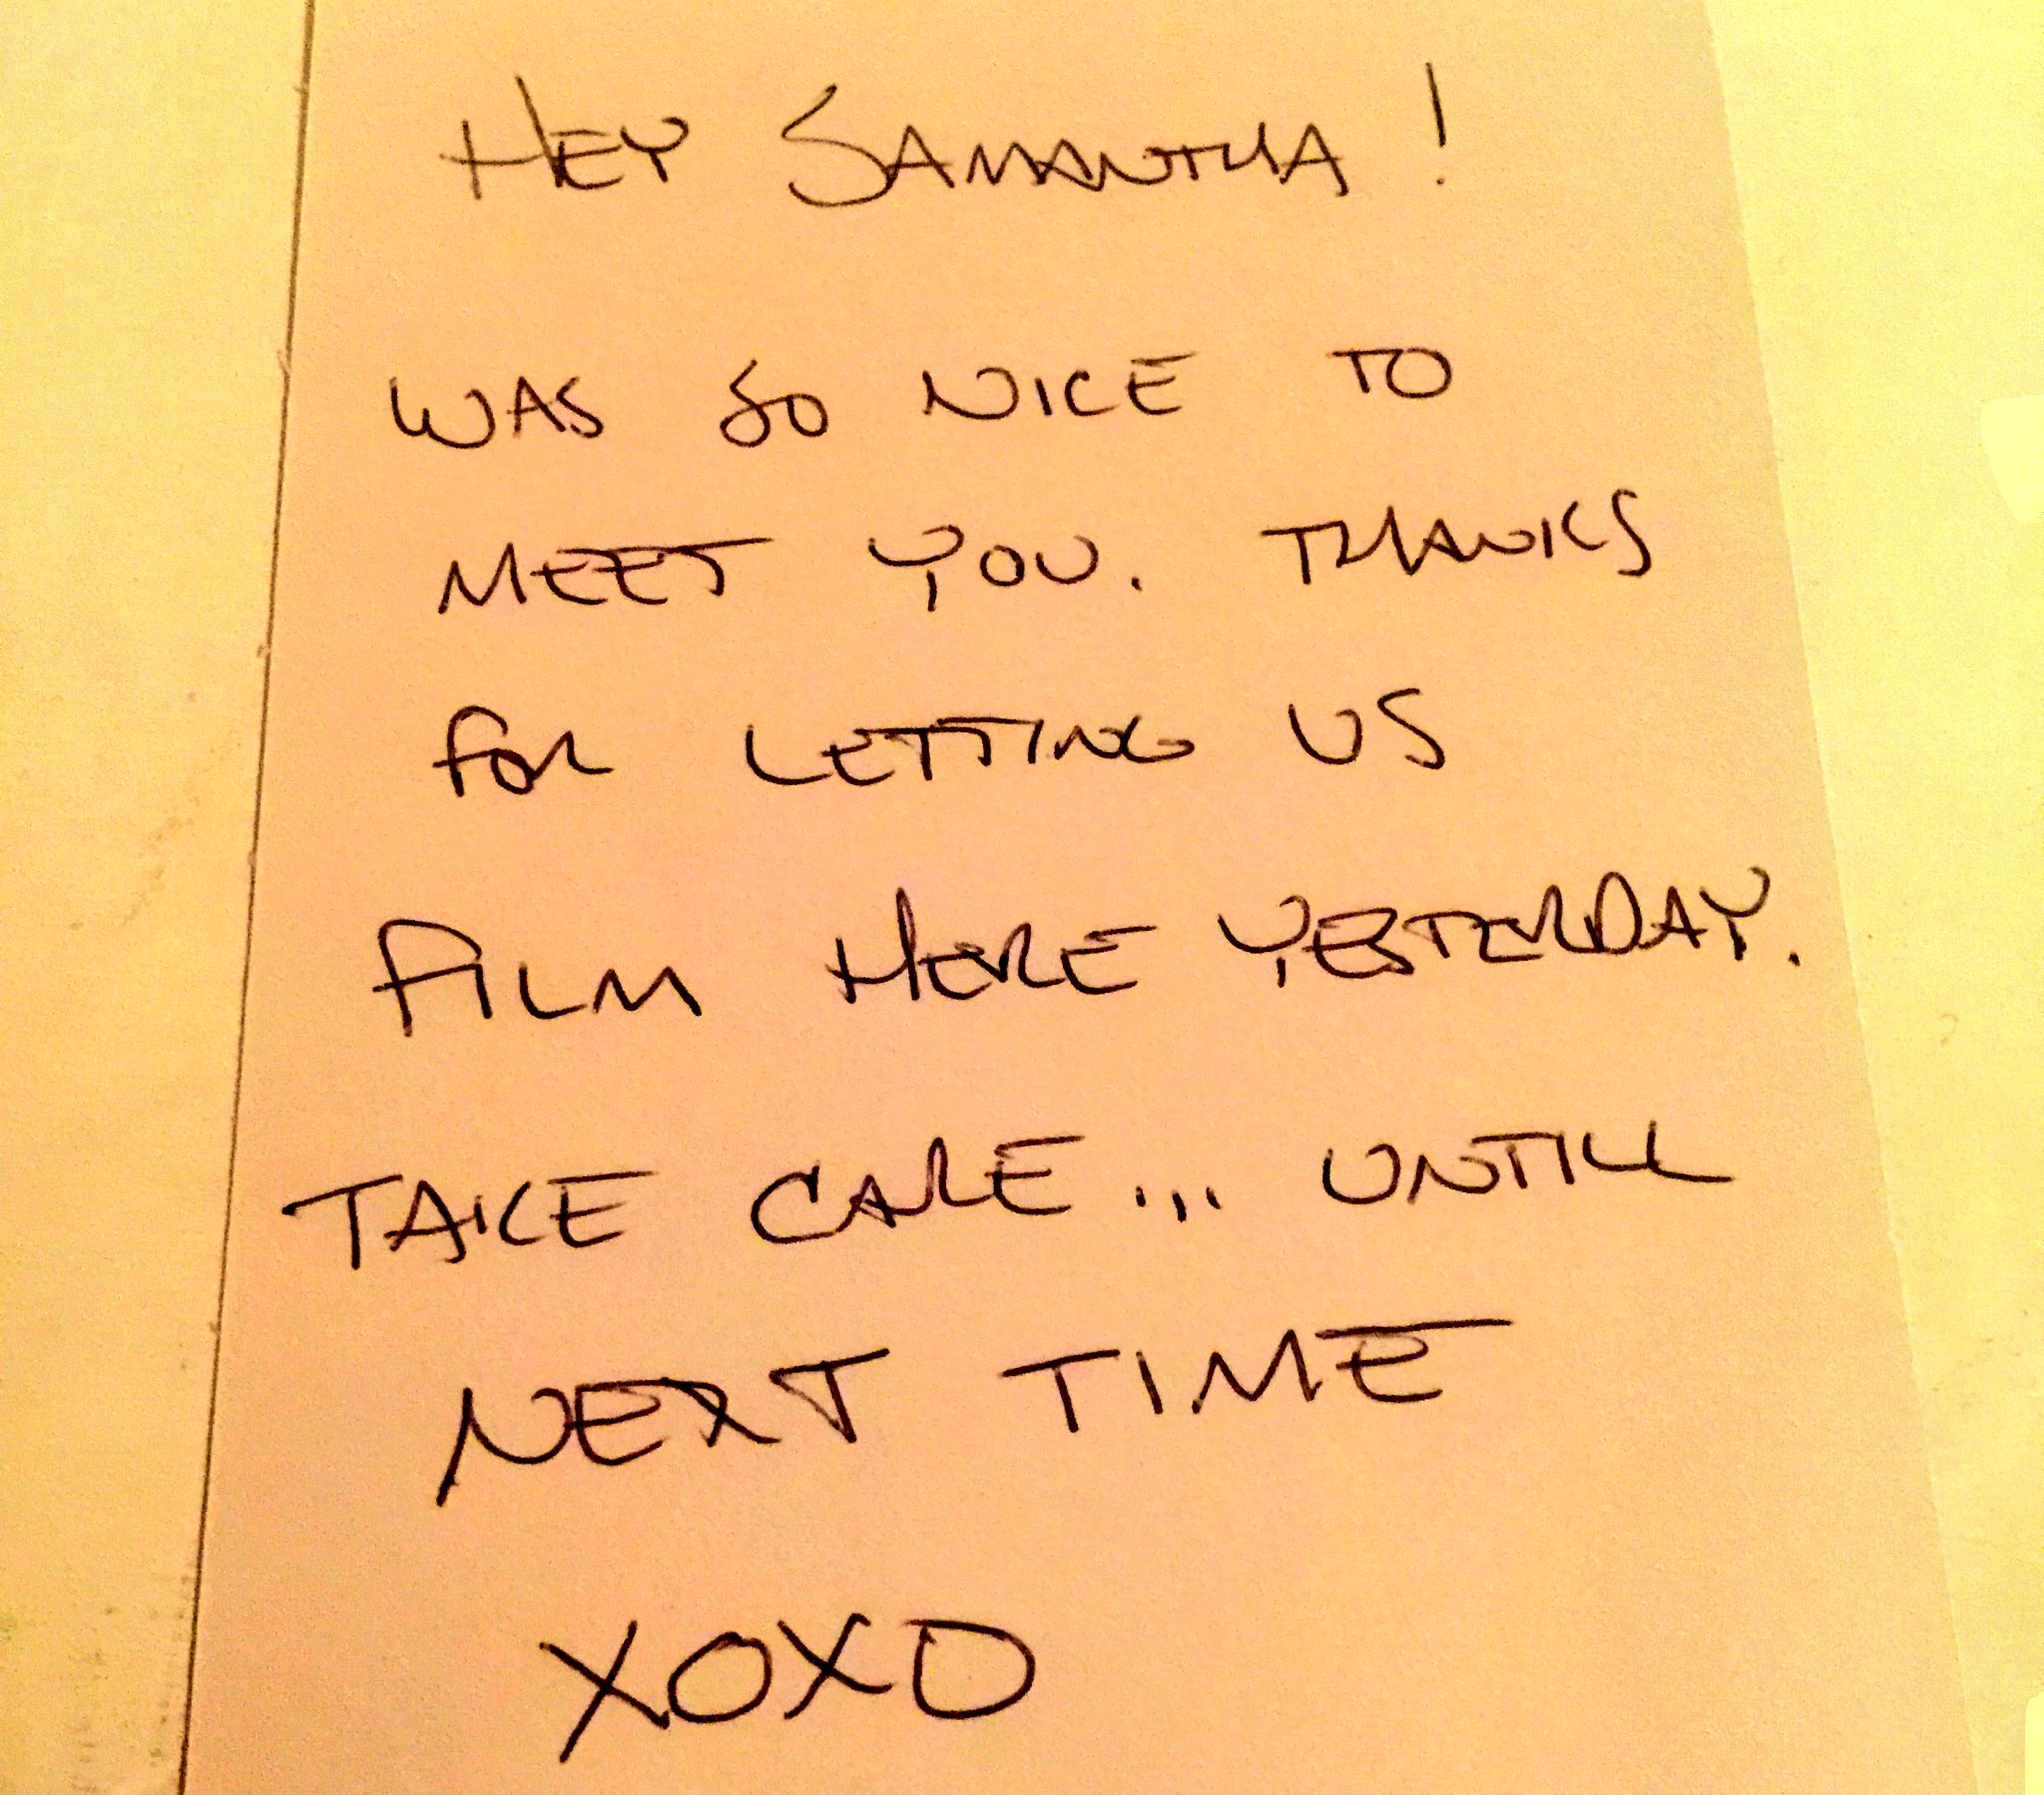 HEY SAMANTHA!
WAS SO NICE TO
MEET YOU. THANKS
FOR LETTING US
FILM HERE YESTERDAY.
TAKE CARE... UNTILL
NEXT TIME
XOXO